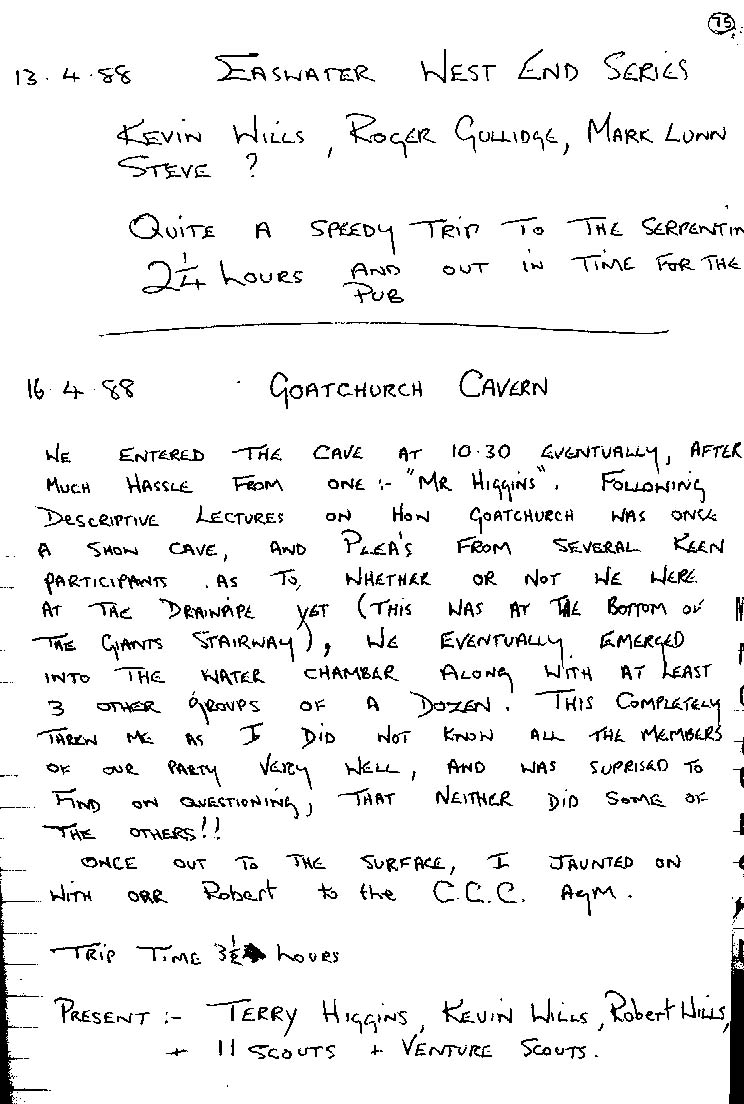 75
13.4.88 EASWATER WEST END SERIES
KEVIN WILLS, ROGER GULLIDGE, MARK LUNN
STEVE ?
QUITE A SPEEDY TRIP TO THE SERPENTIN
2¼ hours AND OUT IN TIME FOR THE
PUB
16.4.88 GOATCHURCH CAVERN
WE ENTERED THE CAVE AT 10.30 EVENTUALLY, AFTER
MUCH HASSLE FROM ONE :- "MR HIGGINS". FOLLOWING
DESCRIPTIVE LECTURES ON HOW GOATCHURCH WAS ONCE
A SHOW CAVE, AND PLEA'S FROM SEVERAL KEEN
PARTICIPANTS . AS TO, WHETHER OR NOT WE WERE
AT THE DRAINPIPE YET (THIS WAS AT THE BOTTOM OF
THE GIANTS STAIRWAY), WE EVENTUALLY EMERGED
INTO THE WATER CHAMBER ALONG WITH AT LEAST
3 OTHER GROUPS OF A DOZEN. THIS COMPLETELY
ME AS I DID NOT KNOW ALL THE MEMBERS
OF OUR PARTY VERY WELL, AND WAS SUPRISED TO
FIND ON QUESTIONING, THAT NEITHER DID SOME OF
THE OTHERS!!
ONCE OUT TO THE SURFACE, I JAUNTED ON
WITH Robert to the C.C.C. AGM.
TRIP TIME 3½ hours
PRESENT :- TERRY HIGGINS, KEVIN WILLS, Robert Wills,
+ 11 SCOUTS + VENTURE SCOUTS.